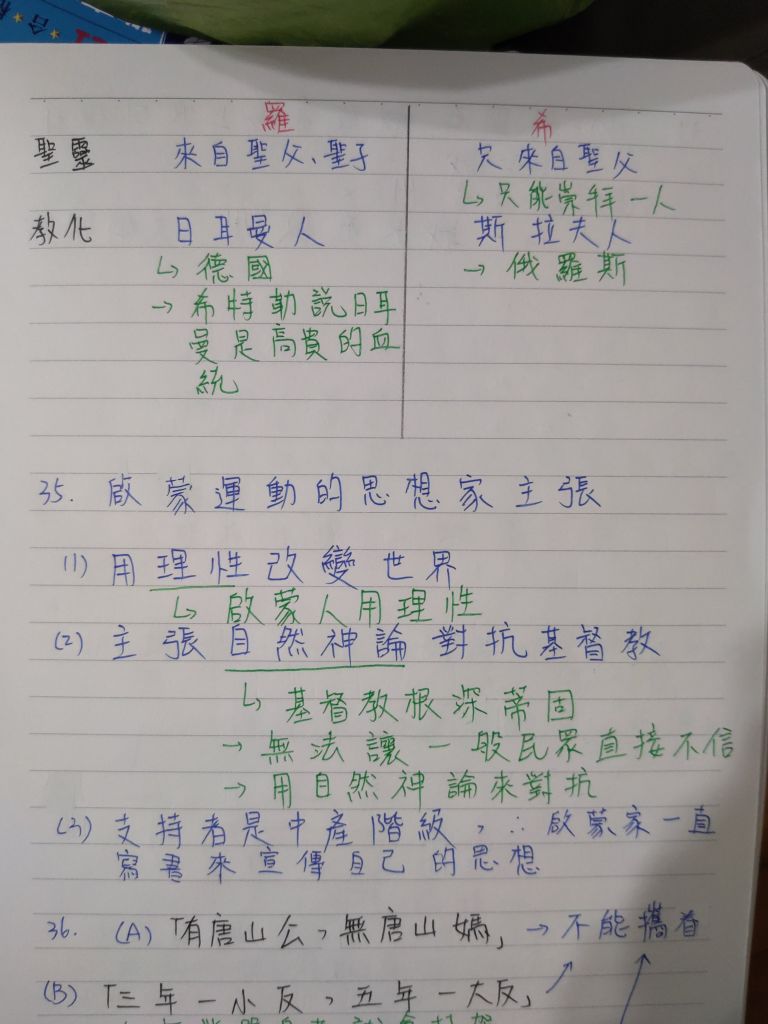 羅 希
聖靈 來自聖父、聖子 只來自聖父
↳ 只能崇拜一人
教化 日耳曼人 斯拉夫人
↳ 德國 → 俄羅斯
→ 希特勒說日耳
曼是高貴的血
統
35. 啟蒙運動的思想家主張
(1) 用理性改變世界
↳ 啟蒙人用理性
(2) 主張自然神論對抗基督教
↳ 基督教根深蒂固
→ 無法讓一般民眾直接不信
→ 用自然神論來對抗
(3) 支持者是中產階級,∴啟蒙家一直
寫書來宣傳自己的思想
36. (A)「有唐山公,無唐山媽」→ 不能攜眷
(B)「三年一小反,五年一大反」